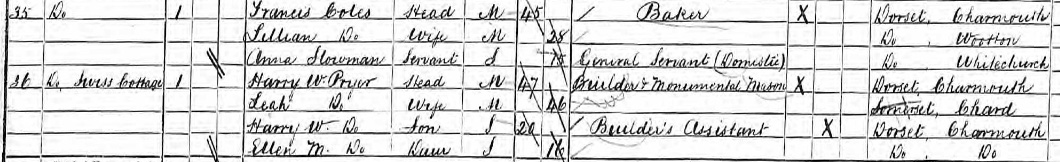 35 Do 1 Francis Coles Head M 45 Baker X Dorset, Charmouth
Lillian Do Wife M 28 Do, Wootton
Anna Slowman Servant S 18 General Servant (Domestic) Do, Whitechurch
36 Do, Swiss Cottage 1 Harry W. Pryer Head M 47 Builder & Monumental Mason X Dorset, Charmouth
Leah Do Wife M 46 Somerset, Chard
Harry W. Do Son S 20 Builder's Assistant X Dorset, Charmouth
Ellen M. Do Daur S 16 Do, Do